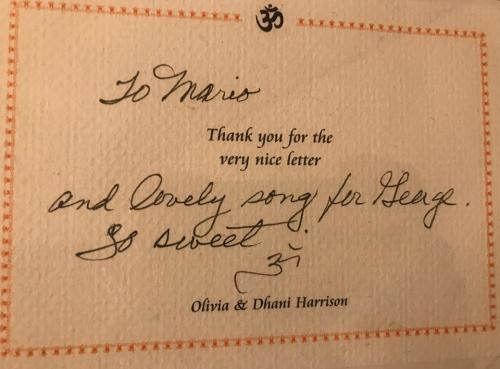 ॐ
To Mario
Thank you for the
very nice letter
and lovely song for George.
So sweet.
ॐ
Olivia & Dhani Harrison